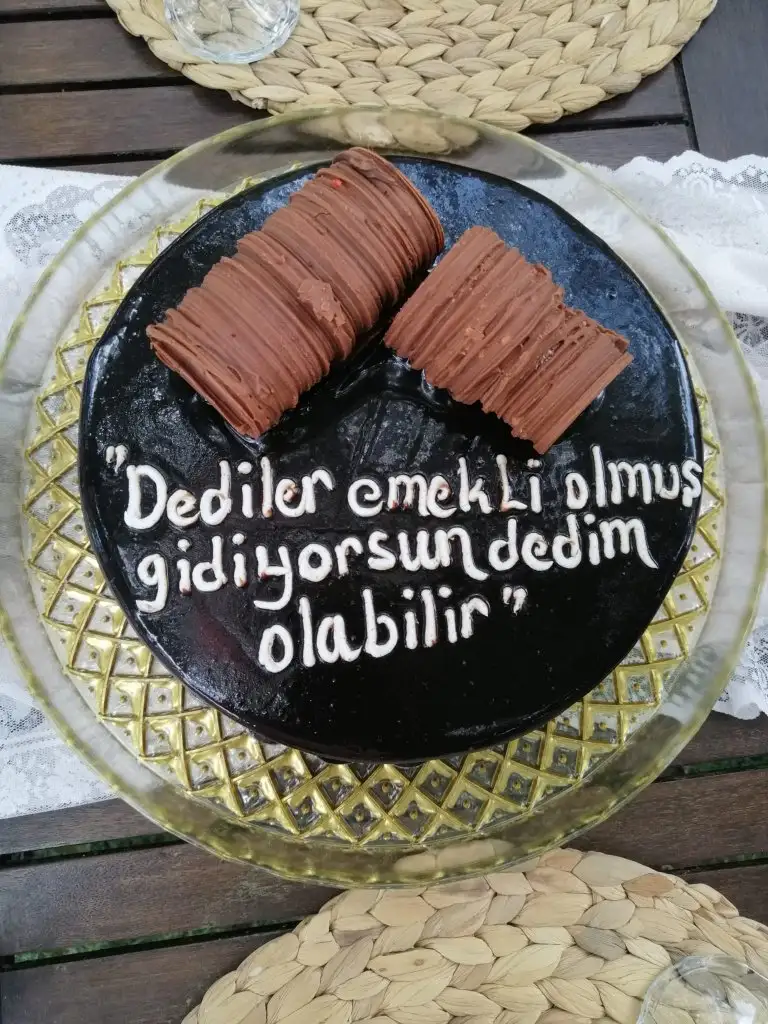 "Dediler emekli olmuş
gidiyorsun dedim
olabilir"